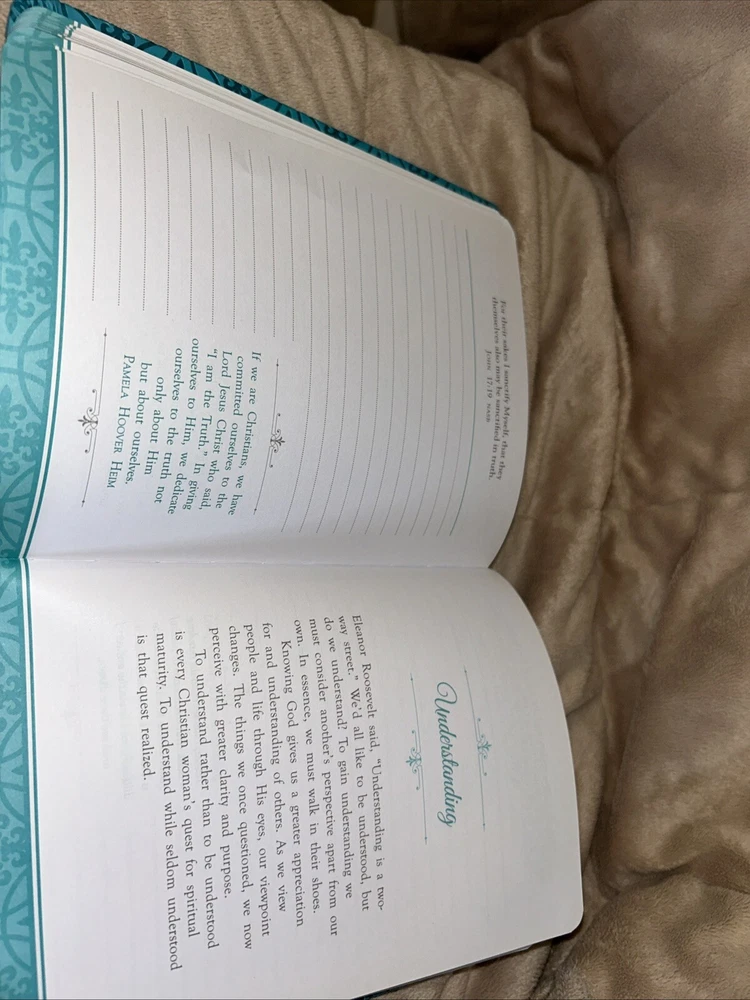 For their sakes I sanctify Myself, that they
themselves also may be sanctified in truth.
JOHN 17:19 NASB
If we are Christians, we have
committed ourselves to the
Lord Jesus Christ who said,
"I am the Truth." In giving
ourselves to Him, we dedicate
ourselves to the truth not
only about Him
but about ourselves.
PAMELA HOOVER HEIM
Understanding
Eleanor Roosevelt said, "Understanding is a two-
way street." We'd all like to be understood, but
do we understand? To gain understanding we
must consider another's perspective apart from our
own. In essence, we must walk in their shoes.
Knowing God gives us a greater appreciation
for and understanding of others. As we view
people and life through His eyes, our viewpoint
changes. The things we once questioned, we now
perceive with greater clarity and purpose.
To understand rather than to be understood
is every Christian woman's quest for spiritual
maturity. To understand while seldom understood
is that quest realized.